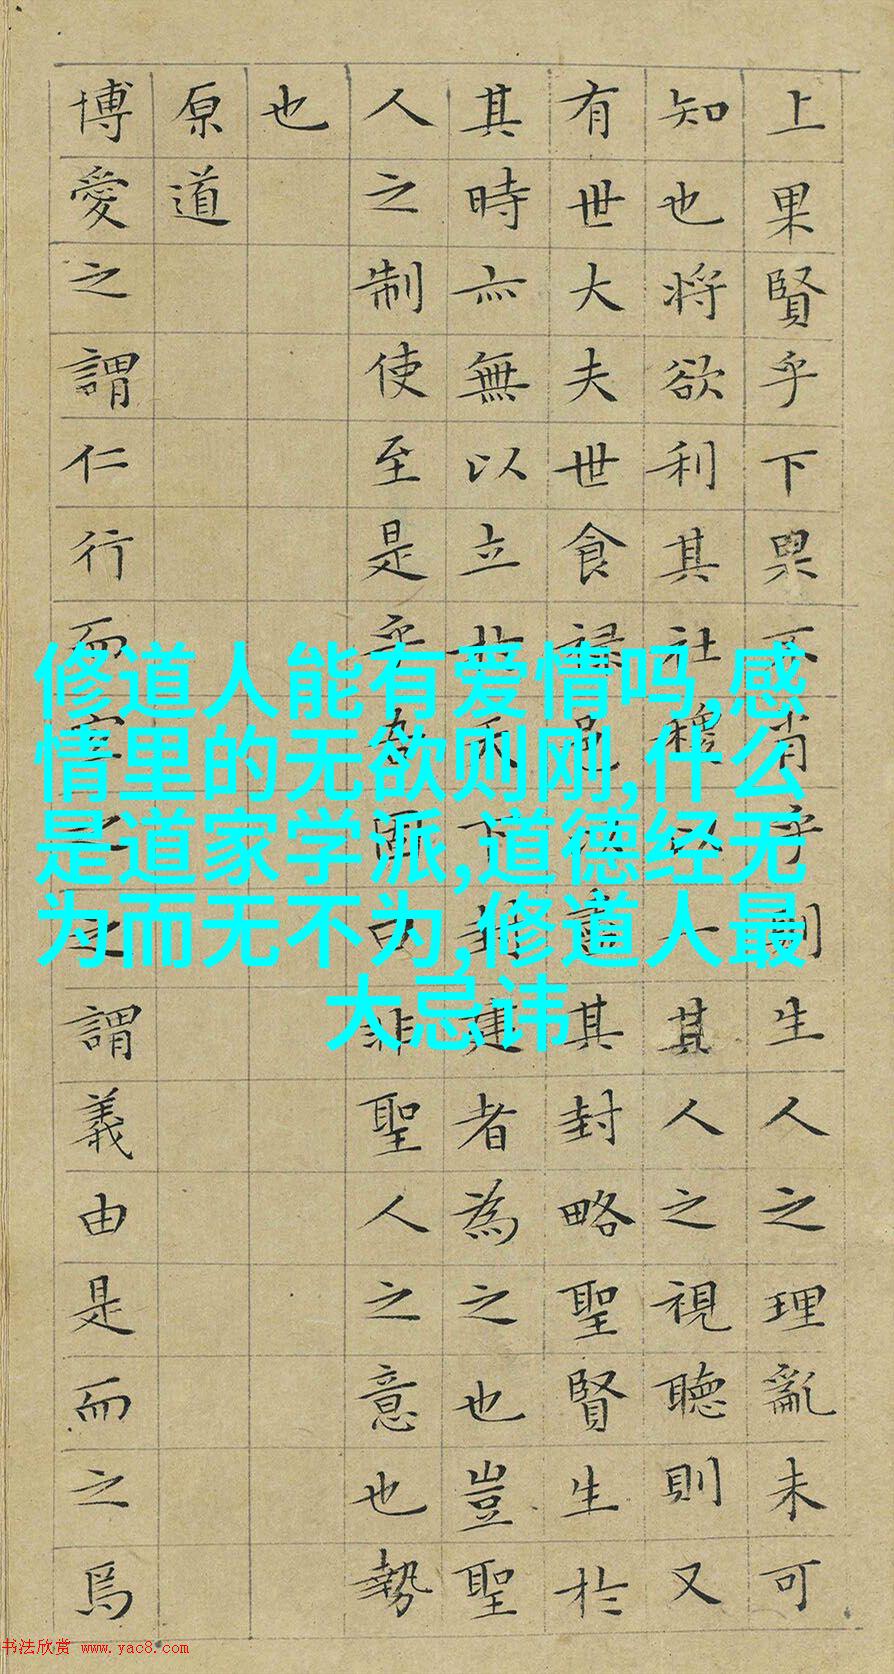 上果賢乎下果不肖乎則生人之理亂未可
知也將欲利其社稷以一其人之視聽則又
有世大夫世食祿邑以盡其封略聖賢生於
其時亦無以立於天下封建者為之也豈聖
人之制使至是乎吾固曰非聖人之意也勢
也
原道
博愛之謂仁行而宜之之謂義由是而之焉
修道人能有爱情吗,感
情里的无欲则刚,什么
是道家学派,道德经无
为而无不为,修道人最
大忌讳
书法欣赏 www.yac8.com